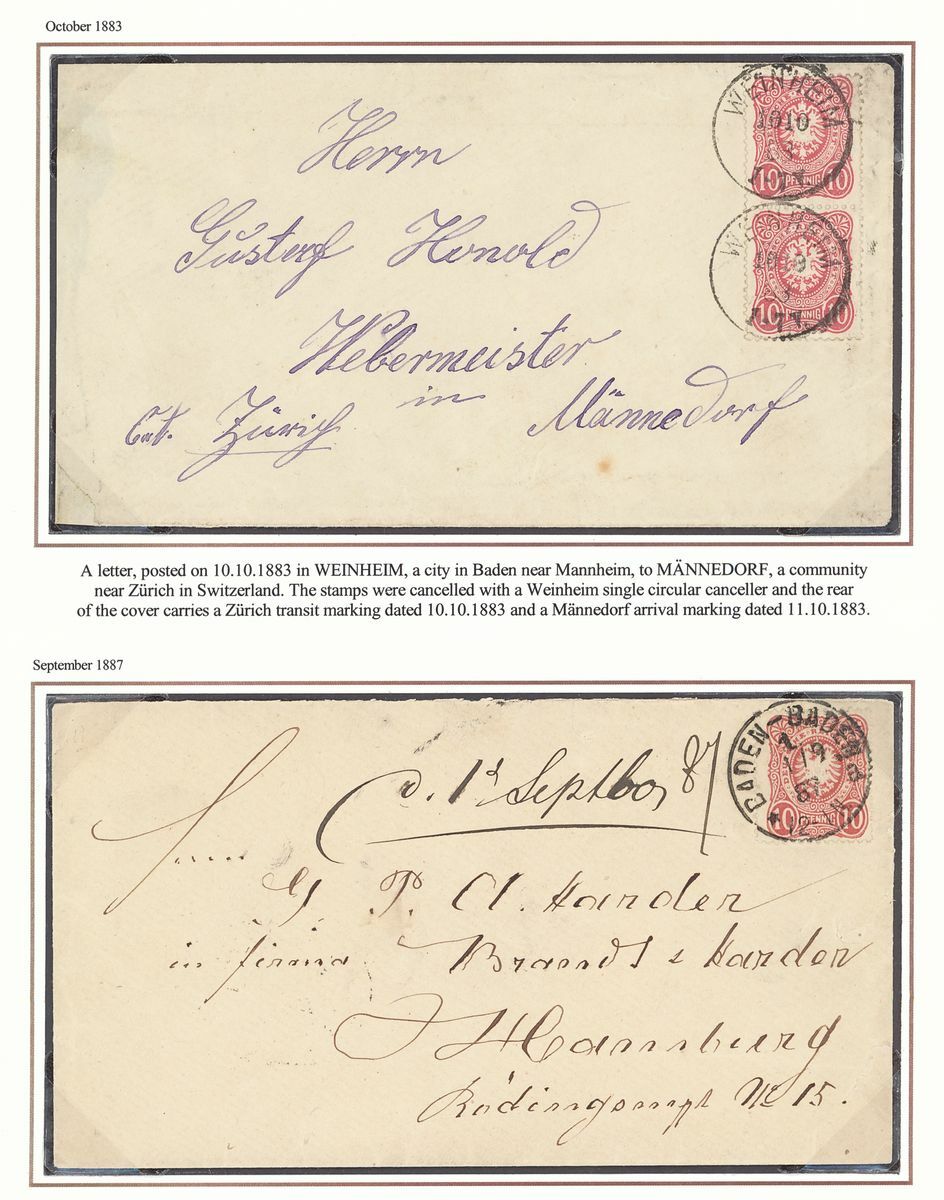 October 1883
WEINHEIM
1010
83
10 PFENNIG 10
WEINHEIM
1010
10 PFENNIG 10
Herrn
Gustaf Honold
Webermeister
in
Cat. Zürich Männedorf
A letter, posted on 10.10.1883 in WEINHEIM, a city in Baden near Mannheim, to MÄNNEDORF, a community
near Zürich in Switzerland. The stamps were cancelled with a Weinheim single circular canceller and the rear
of the cover carries a Zürich transit marking dated 10.10.1883 and a Männedorf arrival marking dated 11.10.1883.
September 1887
* BADEN-BADEN
1/9
87
10 PFENNIG 10
d. 1 Septbr 87
Herrn
G P. A. Harder
in firma Brandt & Harder
Hamburg
Rödingsmkt No 15.